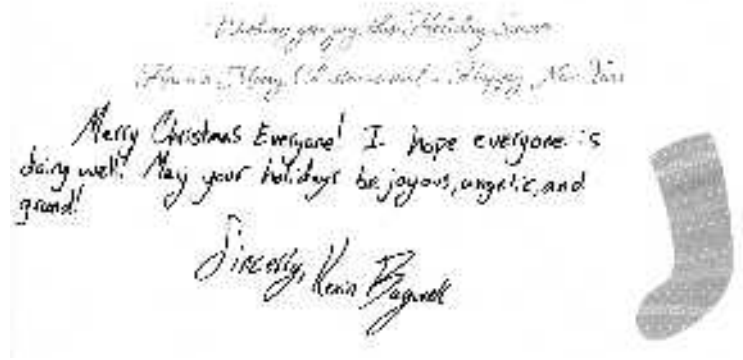 Wishing you joy this Holiday Season
Have a Merry Christmas and a Happy New Year
Merry Christmas Everyone! I hope everyone is
doing well! May your holidays be joyous, angelic, and
grand!
Sincerly, Kevin Bagwell